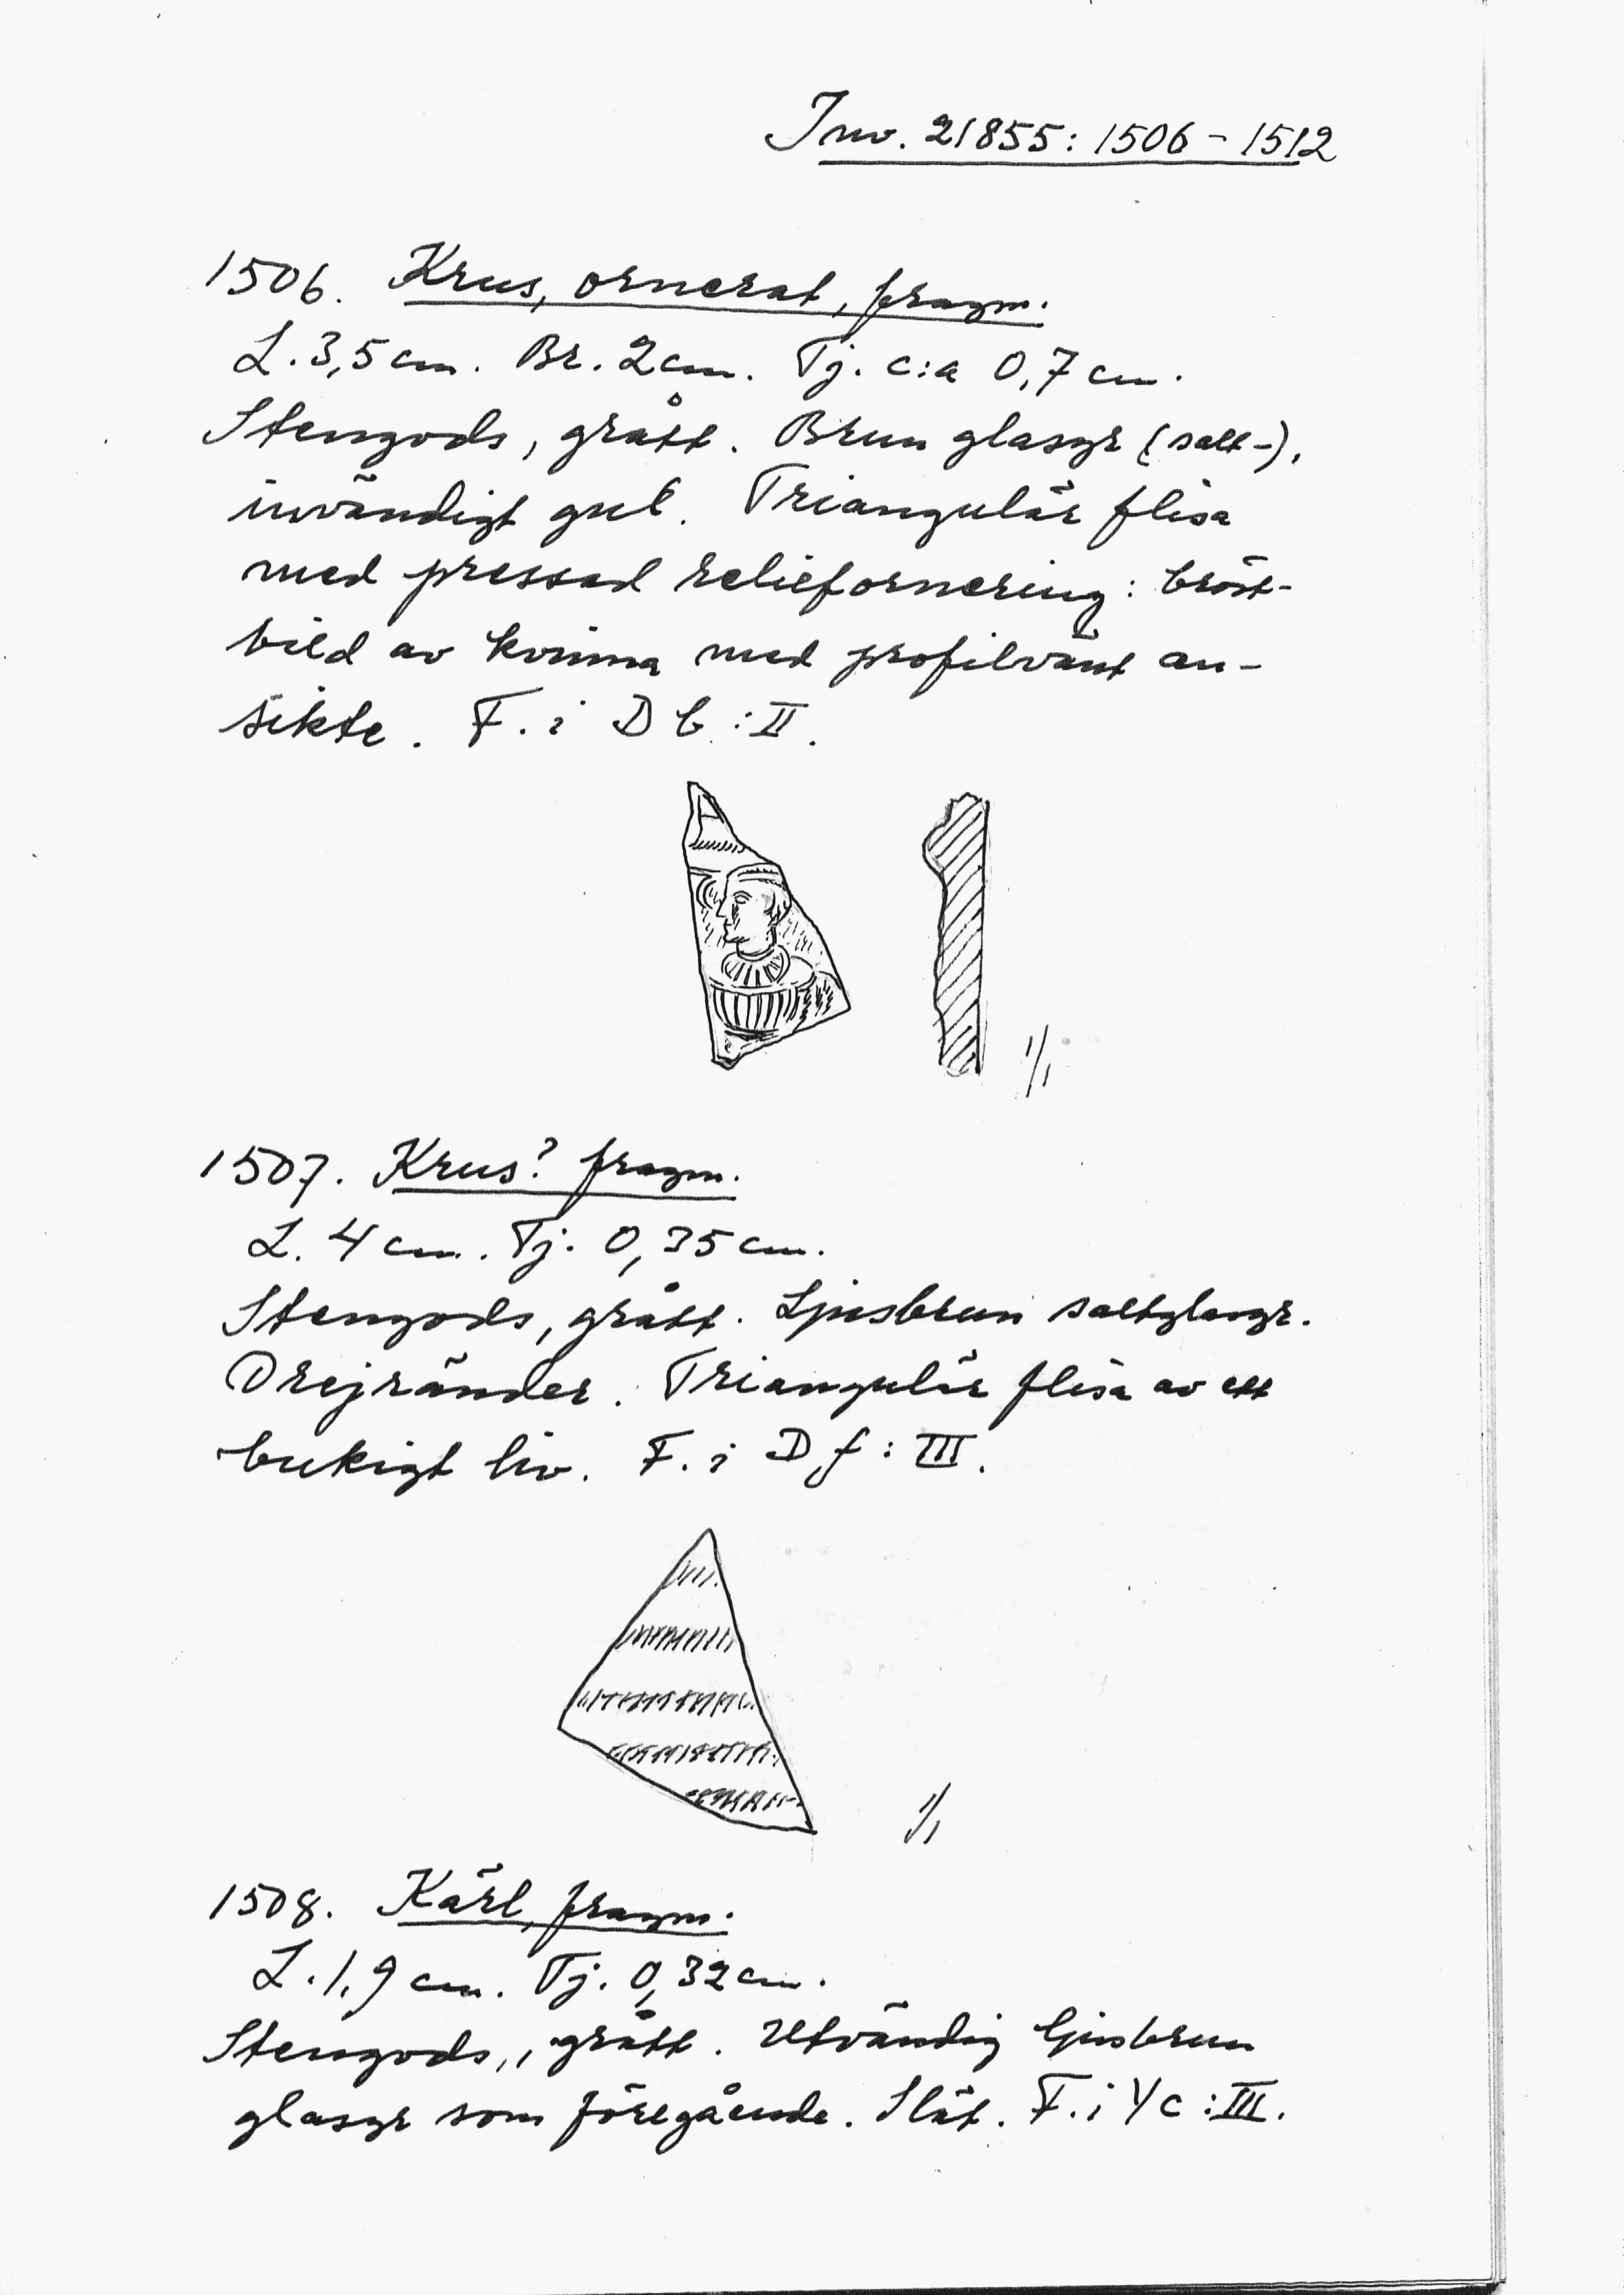 Inv. 21855: 1506 - 1512
1506. Krus, ornerat, fragm.
L. 3,5 cm. Br. 2 cm. Tj. c:a 0,7 cm.
Stengods, grått. Brun glasyr (salt-),
invändigt gul. Triangulär flisa
med pressad reliefornering: bröst-
bild av kvinna med profilvänt an-
sikte. F. i D b : II.
1/1
1507. Krus? fragm.
L. 4 cm. Tj. 0,35 cm.
Stengods, grått. Ljusbrun saltglasyr.
Drejränder. Triangulär flisa av ett
bukigt liv. F. i D f : III.
1/1
1508. Kärl, fragm.
L. 1,9 cm. Tj. 0,32 cm.
Stengods,, grått. Utvändig ljusbrun
glasyr som föregående. Slät. F. i Y c : III.